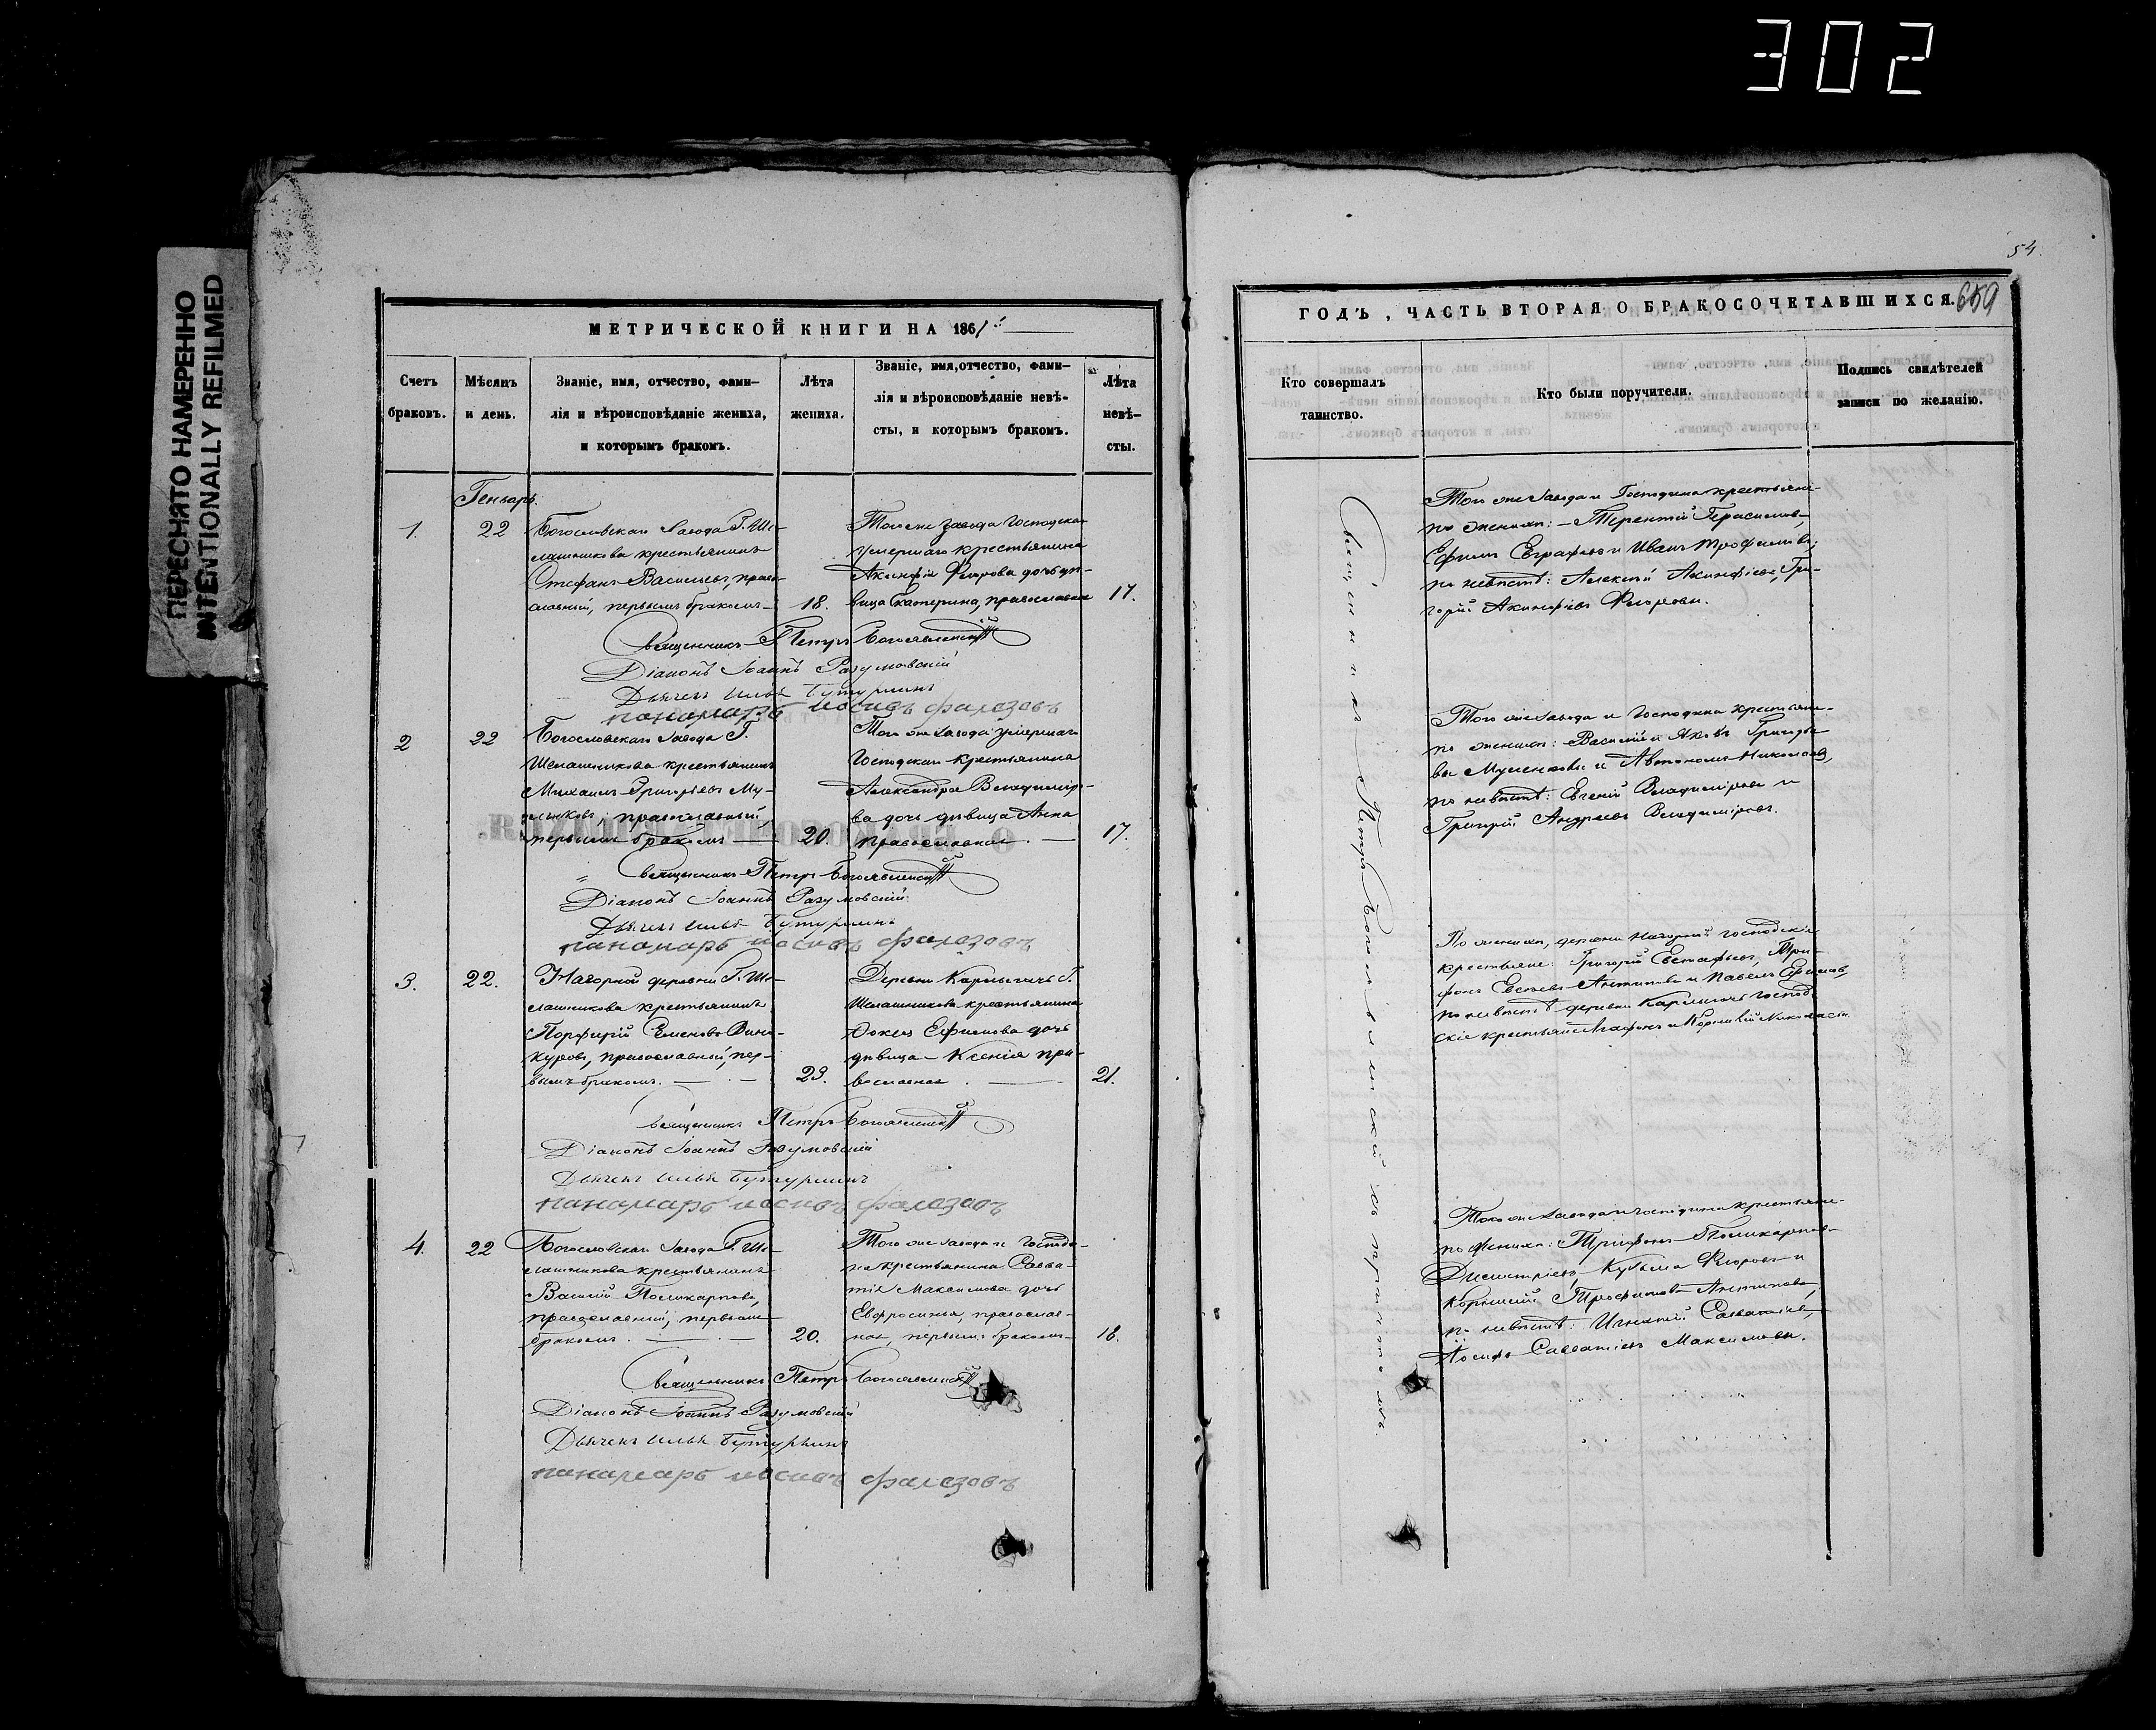 302
ПЕРЕСНЯТО НАМЕРЕННО
INTENTIONALLY REFILMED
МЕТРИЧЕСКОЙ КНИГИ НА 1861й
Счетъ браковъ.
Мѣсяцъ и день.
Званіе, имя, отчество, фами-
лія и вѣроисповѣданіе жениха,
и которымъ бракомъ.
Лѣта жениха.
Званіе, имя, отчество, фами-
лія и вѣроисповѣданіе невѣ-
сты, и которымъ бракомъ.
Лѣта невѣ-
сты.
Генварь.
1. 22
Богословскаго Завода Г. Ше-
лашникова крестьянинъ
Стефанъ Васильевъ, право-
славный, первымъ бракомъ
18.
Того же завода Господскаго
умершаго крестьянина
Акинфія Федорова дочь дѣ-
вица Екатерина, православная
17.
Священникъ Петръ Богоявленскій
Діаконъ Іоаннъ Разумовскій
Дьячекъ Илья Бутурлинъ
панамарь иосивъ фалезовъ
2 22
Богословскаго Завода Г.
Шелашникова крестьянинъ
Михаилъ Григорьевъ Му-
православный,
первымъ бракомъ
20.
Того же Завода умершаго
Господскаго крестьянина
Александра Владимiро-
ва дочь дѣвица Анна
православная.
17.
Священникъ Петръ Богоявленскій
Діаконъ Іоаннъ Разумовскій
Дьячекъ Илья Бутурлинъ
панамарь иосивъ фалезовъ
3. 22.
Нагорной деревни Г. Ше-
лашникова крестьянинъ
Порфирій Семеновъ Вино-
куровъ, православный, пер-
вымъ бракомъ.
23.
Деревни
Шелашникова крестьянина
Фоки Ефимова дочь
дѣвица Ксенія пра-
вославная.
21.
Священникъ Петръ Богоявленскій
Діаконъ Іоаннъ Разумовскій
Дьячекъ Илья Бутурлинъ
панамарь иосивъ фалезовъ
4. 22
Богословскаго Завода Г. Ше-
лашникова крестьянинъ
Василій Поликарповъ,
православный, первымъ
бракомъ.
20.
Того же Завода и Господи-
на крестьянина Савва-
тія Максимова дочь
Евфросинья, православ-
ная, первымъ бракомъ
18.
Священникъ Петръ Богоявленскій
Діаконъ Іоаннъ Разумовскій
Дьячекъ Илья Бутурлинъ
панамарь иосивъ фалезовъ
54.
659
ГОДЪ, ЧАСТЬ ВТОРАЯ О БРАКОСОЧЕТАВШИХСЯ.
Кто совершалъ
таинство.
Кто были поручители.
Подпись свидѣтелей
записи по желанію.
Священникъ Петръ Богоявленскій съ причтомъ
Того же Завода и Господина крестьяне
по женихѣ: Терентій Герасимовъ,
Ефимъ Евграфовъ и Иванъ Трофимовъ;
по невѣстѣ: Алексѣй Акинфіевъ, Гри-
горій Акинфіевъ Федоровы.
Того же Завода и Господина крестьяне
по женихѣ: Василій и Яковъ Григорье-
вы и Автономъ Николаевъ,
по невѣстѣ: Евгеній Владимiровъ и
Григорій Андреевъ Владимiровъ.
По женихѣ, деревни Нагорной Господскіе
крестьяне: Григорій Евстафьевъ, Три-
фонъ Антиповъ и Павелъ Ефимовъ,
по невѣстѣ деревни Господ-
скіе крестьяне Агафонъ и Корнилій
Того же Завода и Господина крестьяне
по женихѣ: Трифонъ Поликарповъ
Дмитріевъ, Кузьма Федоровъ и
Корнилій Трофимовъ Антиповъ,
по невѣстѣ: Игнатій Савватіевъ,
Іосифъ Савватіевъ Максимовы.